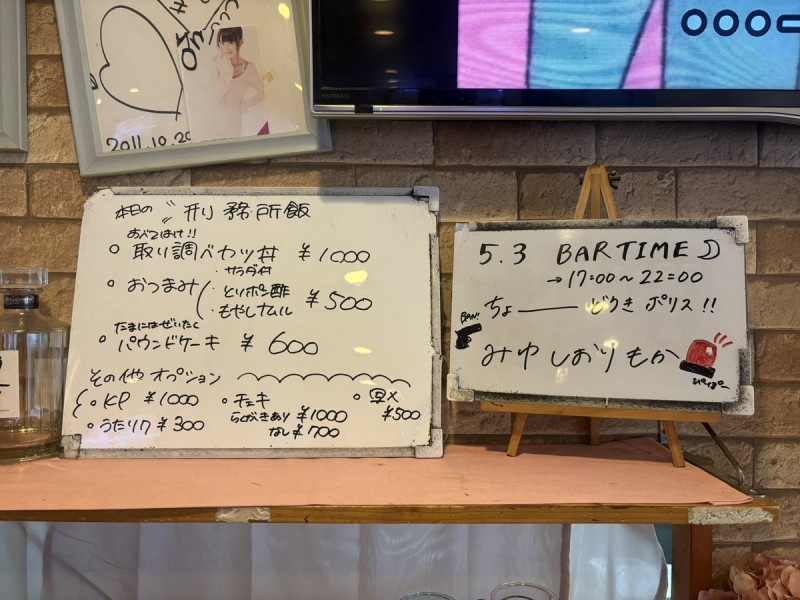 2011.10.20
本日の 刑務所飯
あべではけ!!
取り調べカツ丼 ¥1000
・サラダ付
おつまみ
・とりポン酢
・もやしナムル
¥500
たまにはぜいたく
パウンドケーキ ¥600
その他オプション
KP ¥1000
チェキ
らくがきあり ¥1000
なし ¥700
写メ ¥500
うたリク ¥300
5.3 BARTIME
→17:00~22:00
ちょ―― どりき ポリス!!
BAN!
みゆ しおり もか